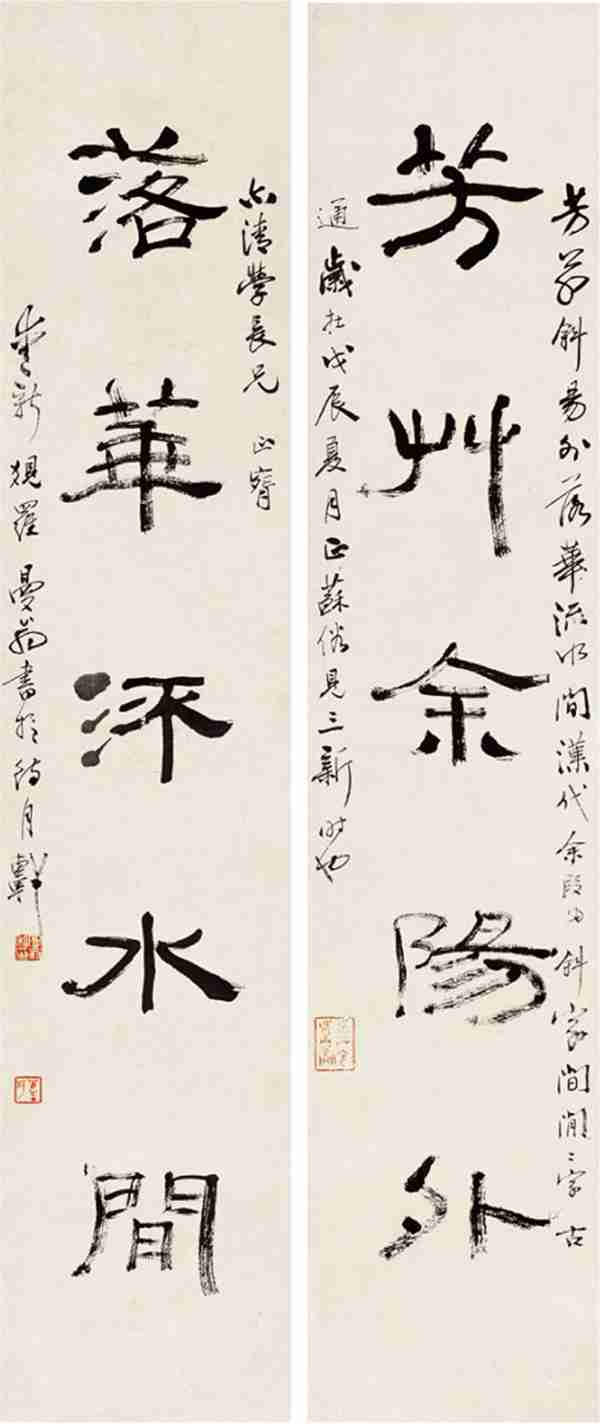 芳草斜昜外落華流水間漢代余叚為斜字間閒二字古
芳艸余陽外
通歲在戊辰夏月正蘇俗見三新時也
亦清學長兄 正
落華流水間
愛新覌羅曼翁書於待月軒